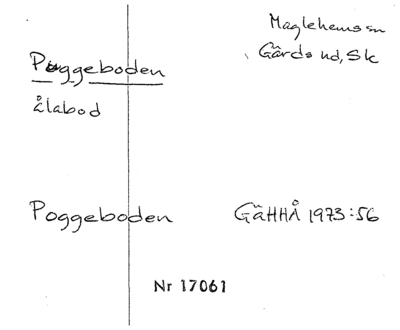 Maglehems sn
Poggeboden
Gärds hd, Sk
ålabod
Poggeboden GäHHÅ 1973:56
Nr 17061